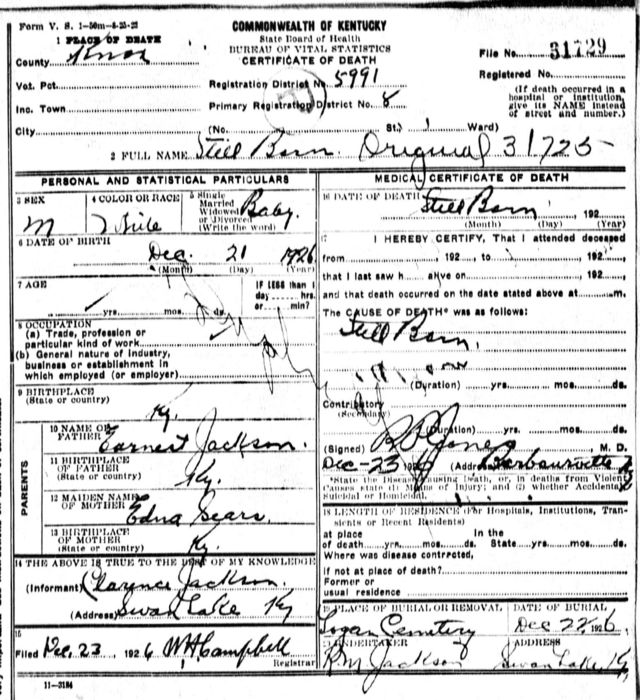 Form V. S. 1-50m-8-23-22
COMMONWEALTH OF KENTUCKY
State Board of Health
BUREAU OF VITAL STATISTICS
CERTIFICATE OF DEATH
1 PLACE OF DEATH
County Knox
File No. 31729
Vot. Pct.
Registration District No. 5991
Registered No.
Inc. Town
Primary Registration District No. 8
(If death occurred in a hospital or institution, give its NAME instead of street and number.)
City
(No. St.) Ward)
2 FULL NAME Still Born. Original 31725
PERSONAL AND STATISTICAL PARTICULARS
3 SEX
M
4 COLOR OR RACE
White
5 Single Married Widowed or Divorced (Write the word)
Baby.
6 DATE OF BIRTH
Dec. 21 1926
(Month) (Day) (Year)
7 AGE
yrs. mos. ds.
IF LESS than 1 day hrs. or min?
8 OCCUPATION
(a) Trade, profession or particular kind of work
(b) General nature of industry, business or establishment in which employed (or employer)
9 BIRTHPLACE
(State or country)
Ky.
PARENTS
10 NAME OF FATHER
Earnest Jackson.
11 BIRTHPLACE OF FATHER
(State or country)
Ky.
12 MAIDEN NAME OF MOTHER
Edna Sears.
13 BIRTHPLACE OF MOTHER
(State or country)
Ky.
14 THE ABOVE IS TRUE TO THE BEST OF MY KNOWLEDGE
(Informant) Clarence Jackson.
(Address) Swan Lake Ky
15
Filed Dec. 23, 1926 W H Campbell
Registrar
11-3184
MEDICAL CERTIFICATE OF DEATH
16 DATE OF DEATH
Still Born 192
(Month) (Day) (Year)
17 I HEREBY CERTIFY, That I attended deceased
from 192 , to 192 ,
that I last saw h alive on 192 ,
and that death occurred on the date stated above at m.
The CAUSE OF DEATH* was as follows:
Still Born.
(Duration) yrs. mos. ds.
Contributory
(Secondary)
(Duration) yrs. mos. ds.
(Signed) Jones M. D.
Dec-23 1926 (Address) Barbourville
*State the Disease Causing Death, or, in deaths from Violent Causes state (1) Means of Injury; and (2) whether Accidental, Suicidal or Homicidal.
18 LENGTH OF RESIDENCE (For Hospitals, Institutions, Transients or Recent Residents)
at place of death yrs. mos. ds. In the State yrs. mos. ds.
Where was disease contracted, if not at place of death?
Former or usual residence
19 PLACE OF BURIAL OR REMOVAL
Logan Cemetery
DATE OF BURIAL
Dec 22, 1926
20 UNDERTAKER
R M Jackson
ADDRESS
Swan Lake, Ky.